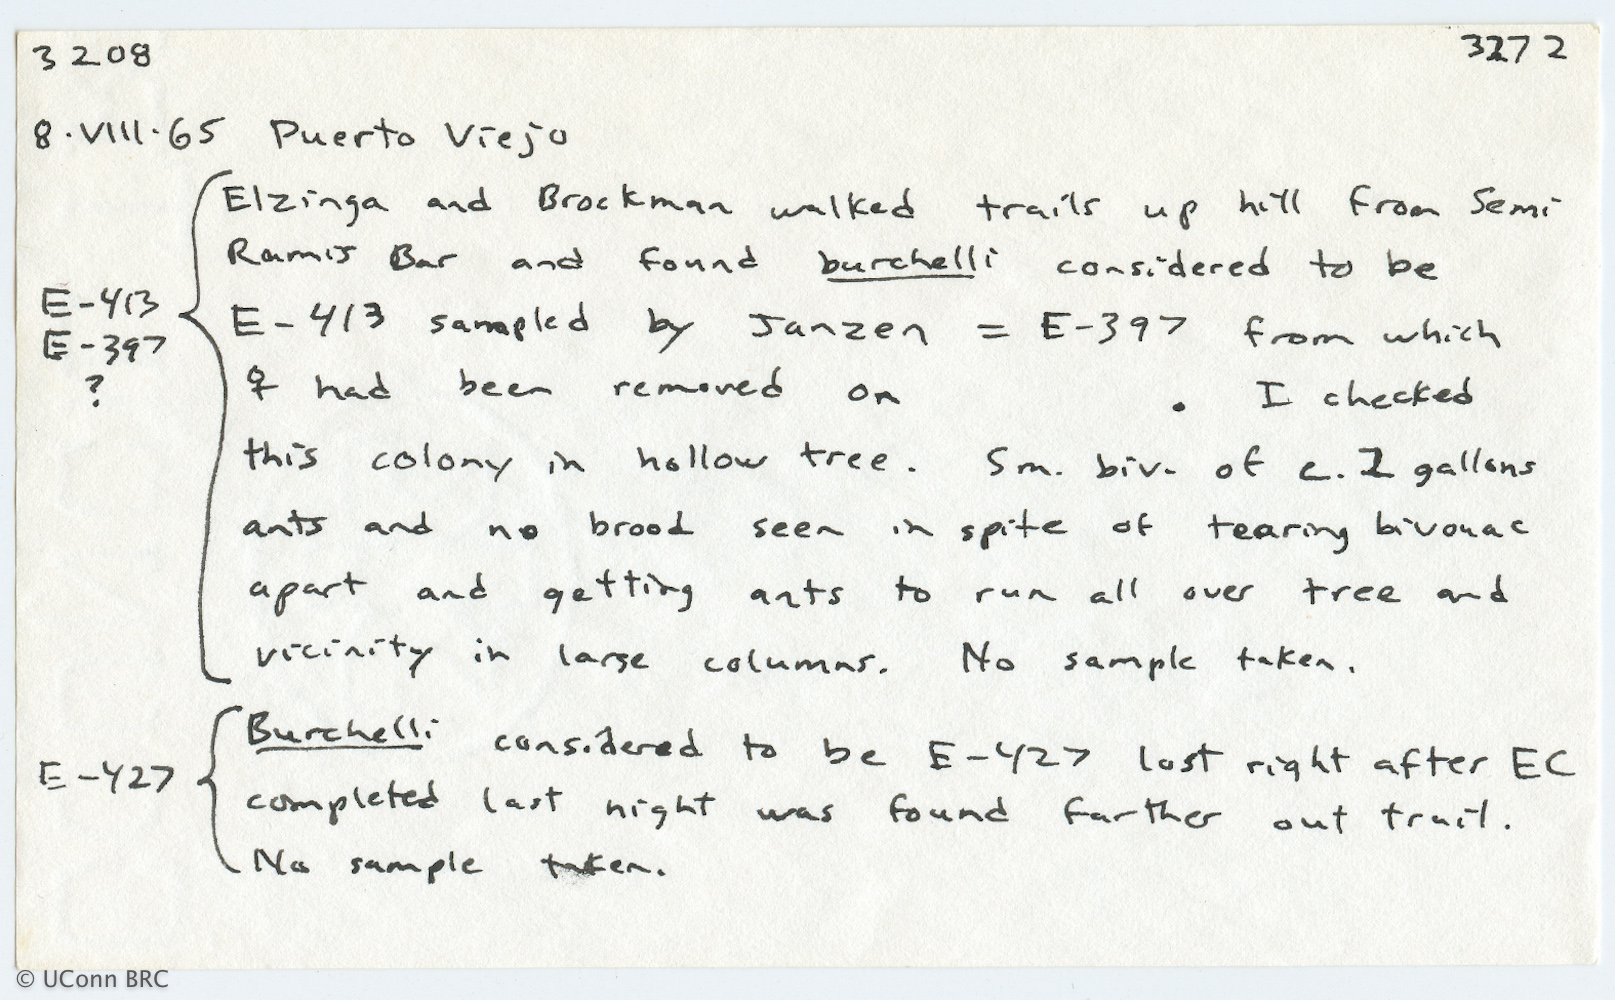 3208 3272
8.VIII.65 Puerto Viejo
Elzinga and Brockman walked trails up hill from Semi
Ramis Bar and found burchelli considered to be
E-413 E-413 sampled by Janzen = E-397 from which
E-397
? ♀ had been removed on . I checked
this colony in hollow tree. Sm. biv. of c. 2 gallons
ants and no brood seen in spite of tearing bivouac
apart and getting ants to run all over tree and
vicinity in large columns. No sample taken.
Burchelli considered to be E-427 lost right after EC
E-427 completed last night was found farther out trail.
No sample taken.
© UConn BRC